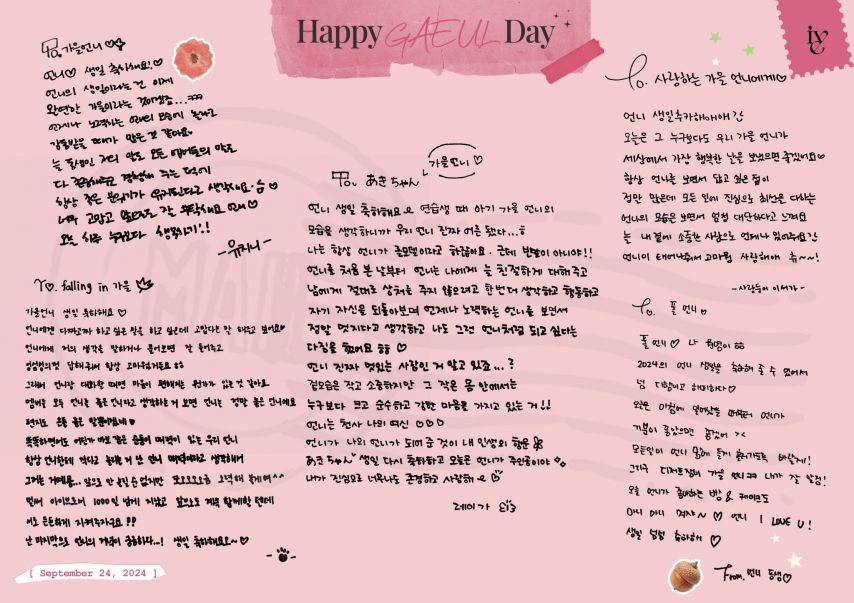 Happy GAEUL Day
IVE
To. 가을언니
언니♡ 생일 축하해요!♡
언니의 생일이라는건 이제
완연한 가을이라는 것이겠죠...ㅋㅋㅋ
언제나 노력하는 언니의 모습에 놀라고
감동받을 때가 많은 것 같아요
늘 동생인 저의 말도 모든 멤버들의 말도
다 공감해주고 경청해 주는 덕에
항상 좋은 분위기가 유지된다고 생각해요.
너무 고맙고 앞으로도 잘 부탁해요
오늘 하루 누구보다 생일자기!!
- 유지니 -
To. falling in 가을
가을언니 생일 축하해요 ♡
언니에겐 다짜고짜 하고 싶은 말을 하고 싶은데 고맙다는 말 해주고 싶어요♡
언니에게 저의 생각을 말하거나 물어보면 잘 들어주고
답해줘서 항상 고마워하거든요
그래서 언니랑 대화할 때면 마음이 편해지는 뭔가가 있는 것 같아요
멤버들 모두 언니를 좋은 언니라고 생각하는 거 보면 언니는 정말 좋은 언니예요
편지도 온통 좋은 말뿐이네요
똑똑하면서도 어딘가 바보 같은 웃음이 매력이 있는 우리 언니
생각해서
앞으로 안 놀릴 수 없지만
벌써 아이브로서 1000일 넘게 지났고 앞으로도 계속 함께할 텐데
서로 든든하게 지켜주자구요
난 마지막으로 언니의 궁금하다..! 생일 축하해요오~♡
[ September 24, 2024 ]
To. あきちゃん 가을언니 ♡
언니 생일 축하해요 연습생 때 아기 가을 언니의
모습을 생각하니까 우리 언니 진짜 어른 됐다...
나는 항상 언니가 롤모델이라고 하잖아요. 근데 빈말이 아니야!!
언니를 처음 본 날부터 언니는 나에게 늘 친절하게 대해주고
남에게 절대로 상처를 주지 않으려고 한번 더 생각하고 행동하고
자기 자신을 되돌아보며 언제나 노력하는 언니를 보면서
정말 멋지다고 생각하고 나도 그런 언니처럼 되고 싶다는
다짐을 했어요 ♡
언니 진짜 멋있는 사람인 거 알고 있죠...?
겉모습은 작고 소중하지만 그 작은 몸 안에서는
누구보다 크고 순수하고 강한 마음을 가지고 있는 거!!
언니는 천사 나의 여신 ♡♡♡
언니가 나의 언니가 되어 준 것이 내 인생의 행운
あきちゃん 생일 다시 축하하고 오늘은 언니가 주인공이야
내가 진심으로 너무나도 존경하고 사랑해 ♡
레이가
To. 사랑하는 가을 언니에게♡
언니 생일추카해애애
오늘은 그 누구보다도 우리 가을 언니가
세상에서 가장 행복한 날을 보냈으면 좋겠어요♡
항상 언니를 보면서 닮고 싶은 점이
정말 많은데 모든 일에 진심으로 최선을 다하는
언니의 모습을 보면서 엄청 대단하다고 느껴요
늘 내 곁에 소중한 사람으로 언제나 있어주요
언니이 태어나줘서 고마워 사랑해애 츄~~!
- 사랑둥이 이서가 -
To. 폴 언니
폴언니♡ 나 원영이
2024의 언니 생일을 축하해 줄 수 있어서
넘 다행이고 해피하다♡
오늘은 아침에 일어났을 때부터 언니가
기분이 좋았으면 좋겠어 ><
모든일이 언니 맘에 들게 흘러가도록 바랄게!
그리구 디저트집에 가을 언니
오늘 언니가 좋아하는 빵 & 케이크도
마니 마니 먹자~ ♡ 언니 I LOVE U!
생일 넘넘 축하해 ♡
From. 언니 동생♡